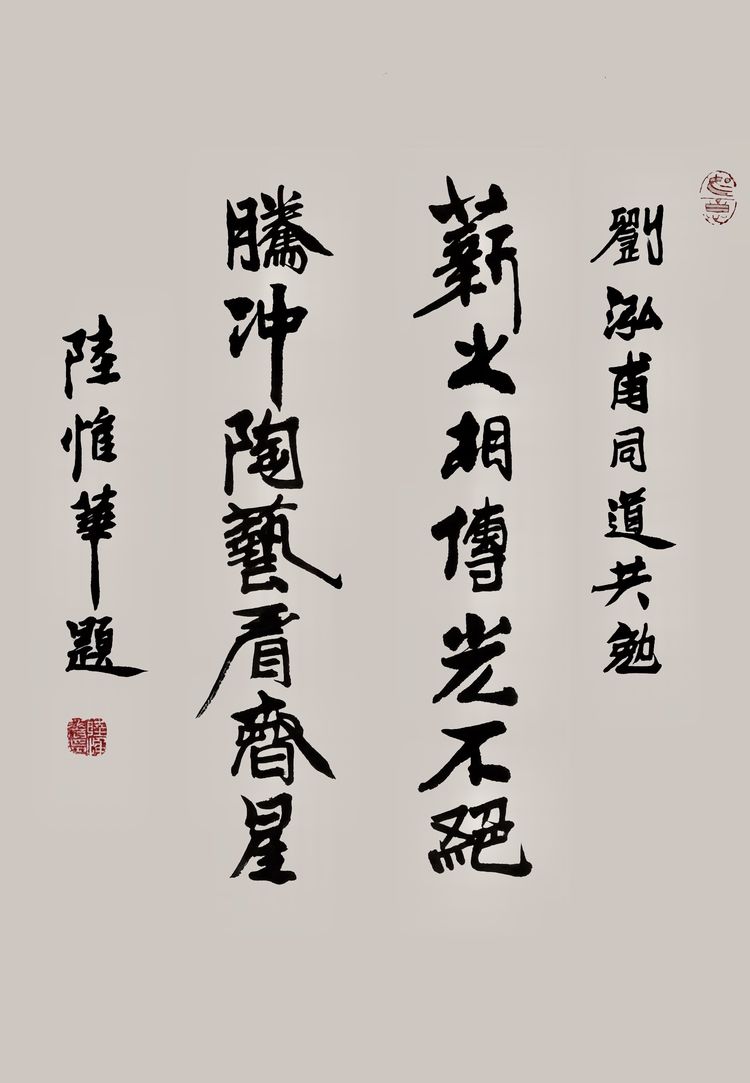 劉泓甫同道共勉
薪火相傳光不絕
騰冲陶藝看齊星
陸惟華題